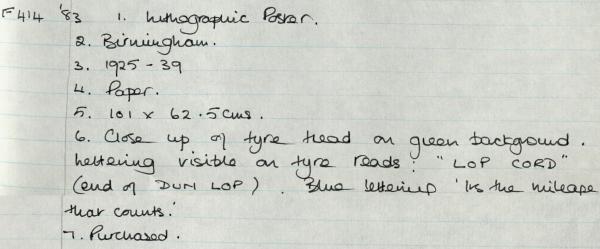 F414 '83 1. Lithographic Poster.
2. Birmingham.
3. 1925 - 39
4. Paper.
5. 101 x 62.5cms.
6. Close up of tyre tread on green background.
Lettering visible on tyre reads: "LOP CORD"
(end of DUNLOP). Blue lettering 'Its the mileage
that counts.'
7. Purchased.